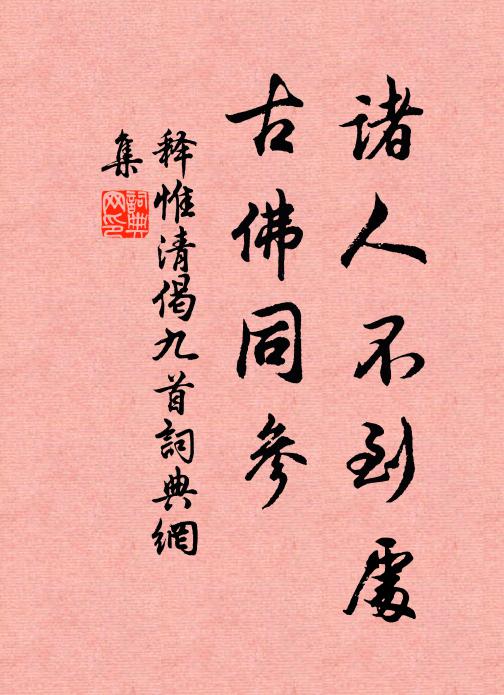 诸人不到處
古佛同參
释惟清偈九首詞典網
集
詞典
网印